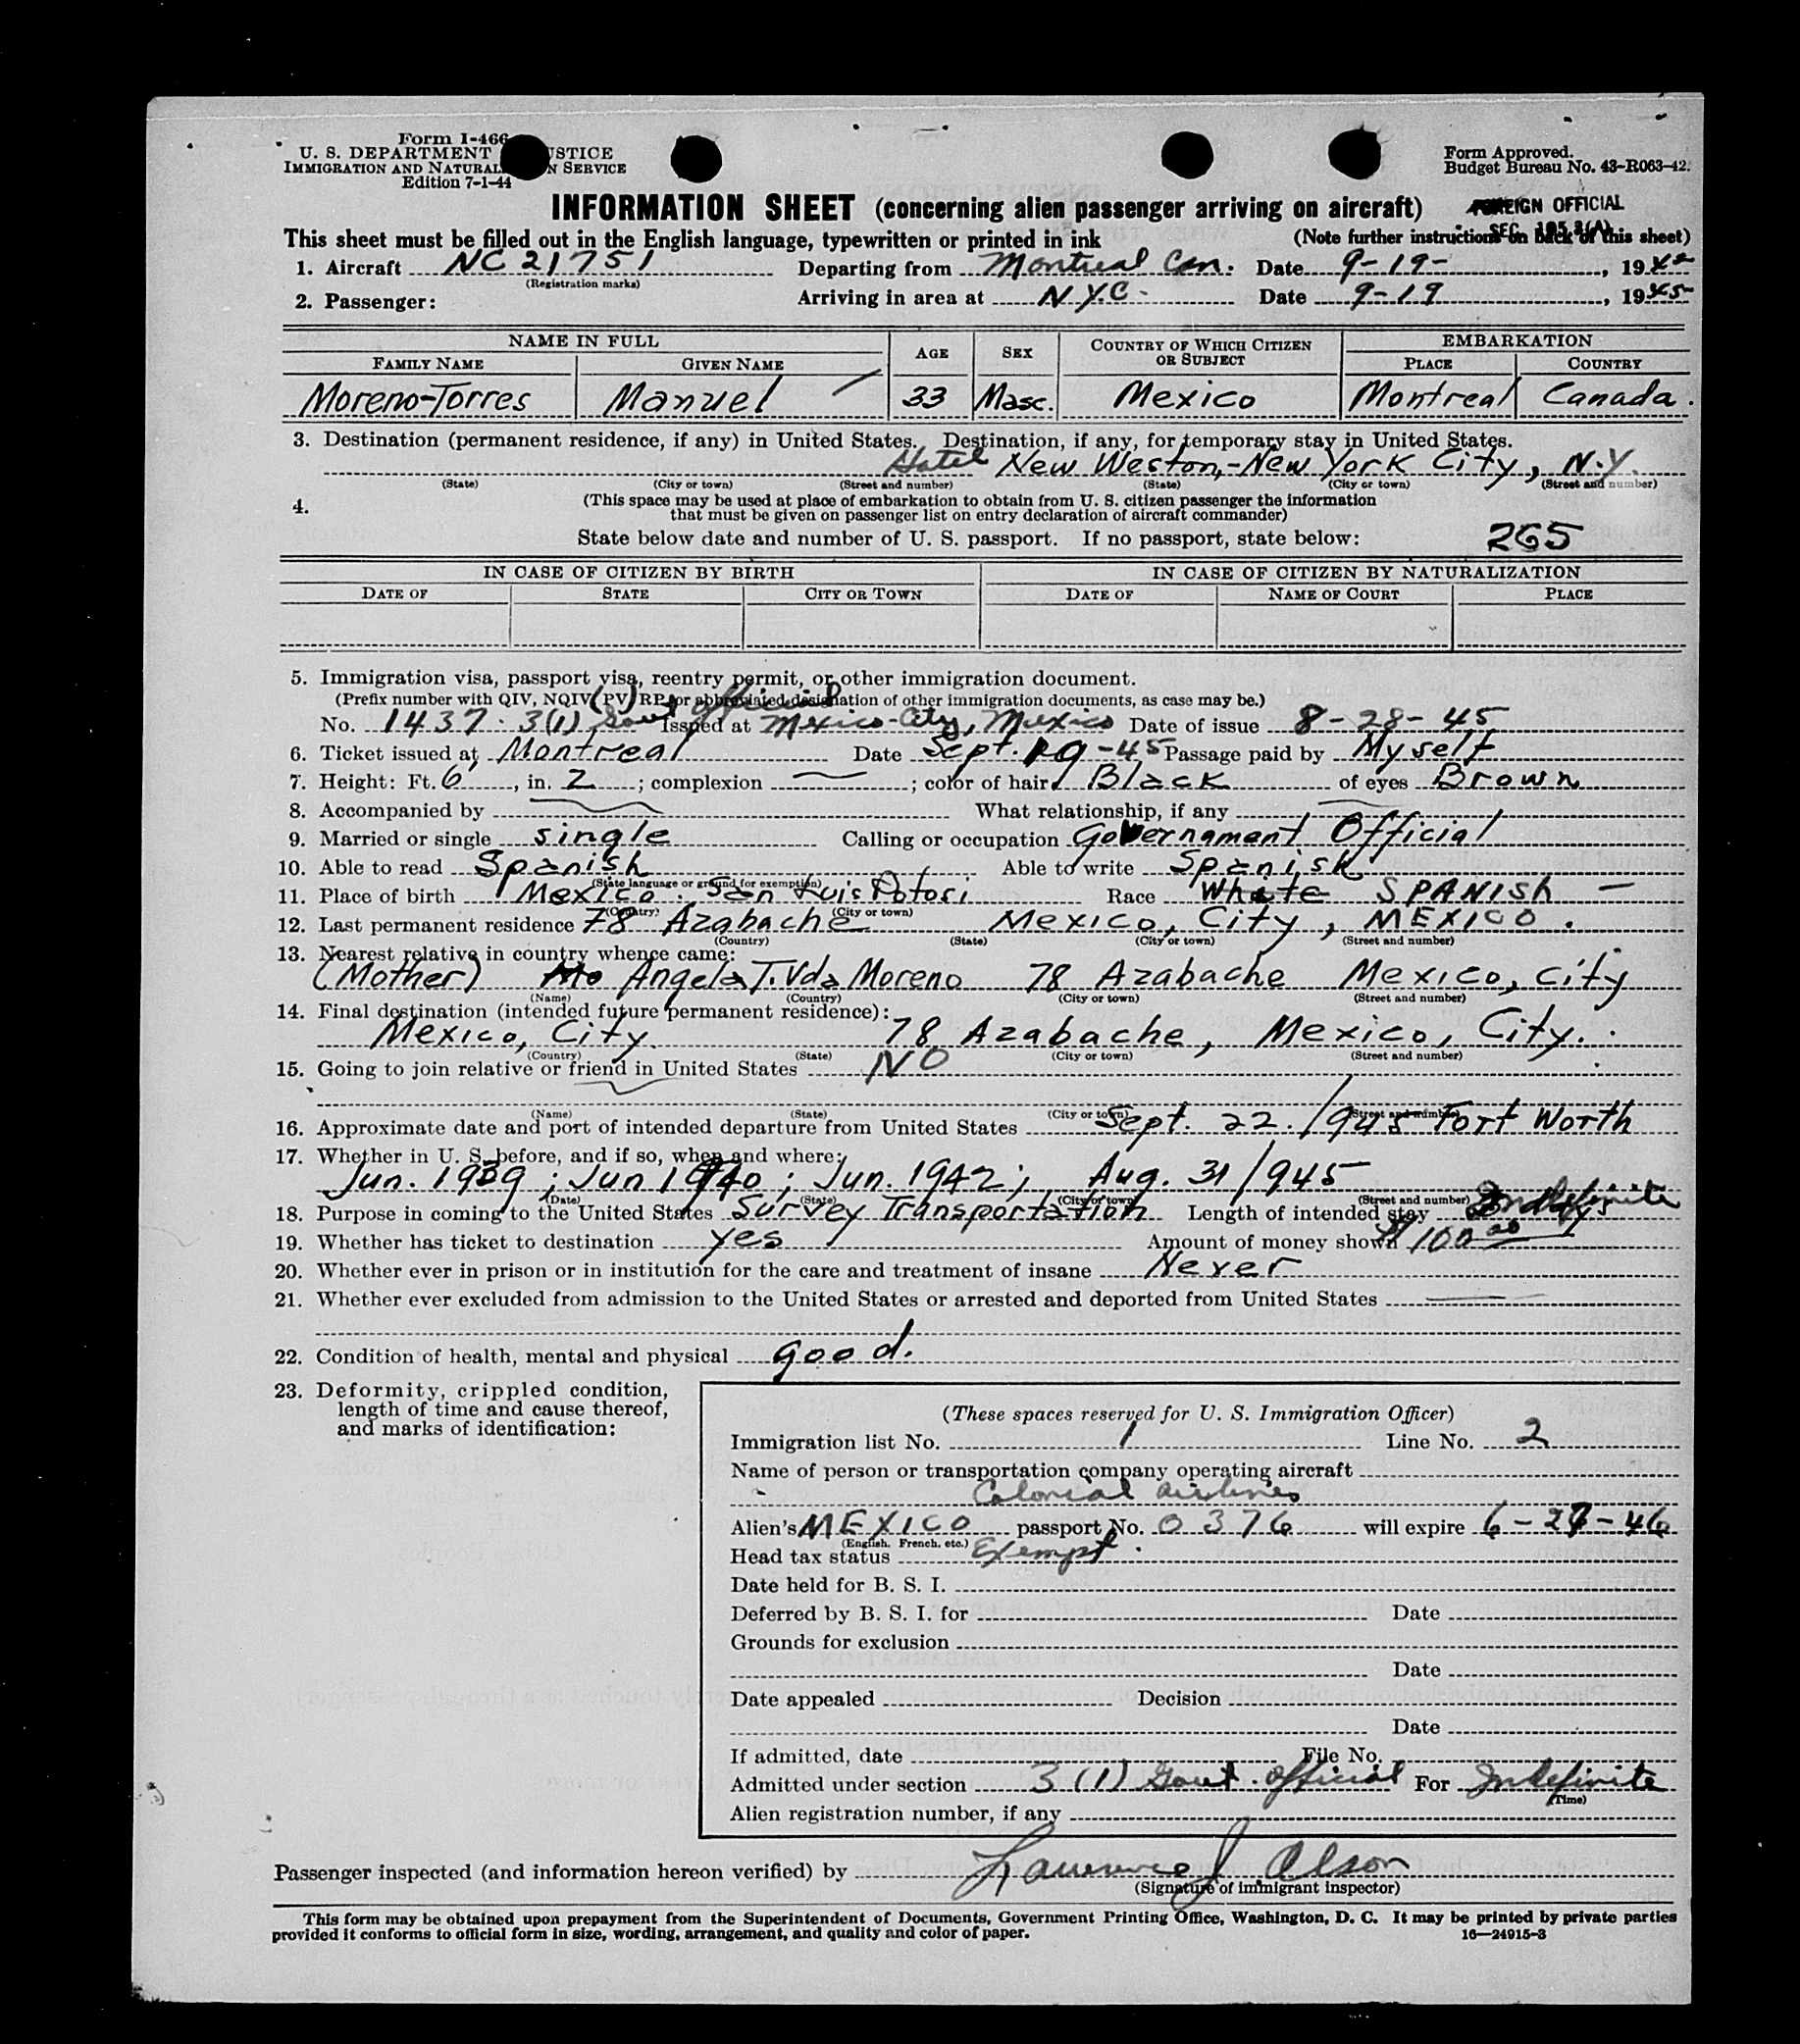 Form I-466
U. S. DEPARTMENT USTICE
IMMIGRATION AND NATURAL N SERVICE
Edition 7-1-44
Form Approved.
Budget Bureau No. 43-R063-42.
INFORMATION SHEET (concerning alien passenger arriving on aircraft)
FOREIGN OFFICIAL
This sheet must be filled out in the English language, typewritten or printed in ink
(Note further instructions on back of this sheet)
1. Aircraft NC 21751 Departing from Montreal Can. Date 9-19- , 19
(Registration marks)
2. Passenger: Arriving in area at N.Y.C. Date 9-19 , 1945
NAME IN FULL AGE SEX COUNTRY OF WHICH CITIZEN OR SUBJECT EMBARKATION
FAMILY NAME GIVEN NAME PLACE COUNTRY
Moreno-Torres Manuel 33 Masc. Mexico Montreal Canada.
3. Destination (permanent residence, if any) in United States. Destination, if any, for temporary stay in United States.
Hotel New Weston,-New York City, N.Y.
(State) (City or town) (Street and number) (State) (City or town) (Street and number)
4. (This space may be used at place of embarkation to obtain from U. S. citizen passenger the information
that must be given on passenger list on entry declaration of aircraft commander)
State below date and number of U. S. passport. If no passport, state below: 265
IN CASE OF CITIZEN BY BIRTH IN CASE OF CITIZEN BY NATURALIZATION
DATE OF STATE CITY OR TOWN DATE OF NAME OF COURT PLACE
5. Immigration visa, passport visa, reentry permit, or other immigration document.
(Prefix number with QIV, NQIV (PV) RP, or abbreviated designation of other immigration documents, as case may be.)
No. 1437. 3(1) Govt official Issued at Mexico-City, Mexico Date of issue 8-28-45
6. Ticket issued at Montreal Date Sept. 19-45 Passage paid by Myself
7. Height: Ft. 6 , in. 2 ; complexion ; color of hair Black of eyes Brown
8. Accompanied by What relationship, if any
9. Married or single single Calling or occupation Governament Official
10. Able to read Spanish Able to write Spanish
(State language or ground for exemption)
11. Place of birth Mexico. San Luis Potosi Race White SPANISH —
(Country) (City or town)
12. Last permanent residence 78 Azabache Mexico, City, MEXICO.
(Country) (State) (City or town) (Street and number)
13. Nearest relative in country whence came:
(Mother) Angela T. Vda Moreno 78 Azabache Mexico, City
(Name) (Country) (City or town) (Street and number)
14. Final destination (intended future permanent residence):
Mexico, City. 78 Azabache, Mexico, City.
(Country) (State) (City or town) (Street and number)
15. Going to join relative or friend in United States NO
(Name) (State) (City or town) (Street and number)
16. Approximate date and port of intended departure from United States Sept. 22. 1945 Fort Worth
17. Whether in U. S. before, and if so, when and where:
Jun. 1939; Jun 1940; Jun. 1942; Aug. 31/945
(Date) (State) (City or town) (Street and number)
18. Purpose in coming to the United States Survey Transportation Length of intended stay Indefinite
19. Whether has ticket to destination yes Amount of money shown $100.00
20. Whether ever in prison or in institution for the care and treatment of insane Never
21. Whether ever excluded from admission to the United States or arrested and deported from United States
22. Condition of health, mental and physical good.
23. Deformity, crippled condition,
length of time and cause thereof,
and marks of identification:
(These spaces reserved for U. S. Immigration Officer)
Immigration list No. 1 Line No. 2
Name of person or transportation company operating aircraft
Colonial Airlines
Alien's MEXICO passport No. 0376 will expire 6-27-46
(English, French, etc.)
Head tax status Exempt.
Date held for B. S. I.
Deferred by B. S. I. for Date
Grounds for exclusion
Date
Date appealed Decision
Date
If admitted, date File No.
Admitted under section 3(1) Govt. official For Indefinite
(Time)
Alien registration number, if any
Passenger inspected (and information hereon verified) by Lawrence J. Olson
(Signature of immigrant inspector)
This form may be obtained upon prepayment from the Superintendent of Documents, Government Printing Office, Washington, D. C. It may be printed by private parties
provided it conforms to official form in size, wording, arrangement, and quality and color of paper. 16—24915-3